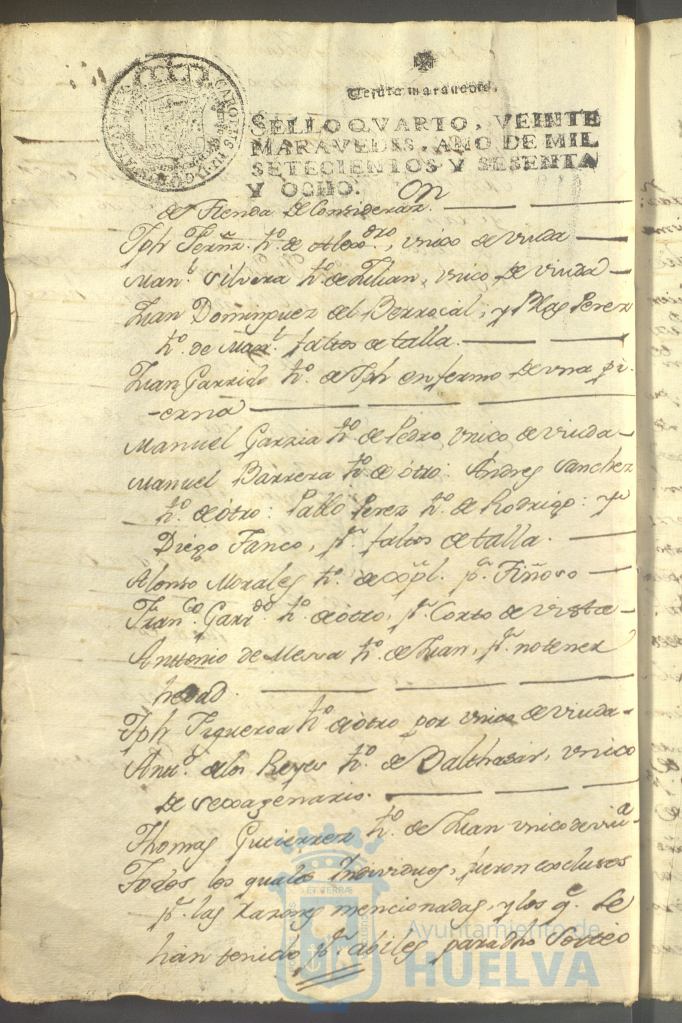 CAROLUS III D G
Veinte maravedis.
SELLO QVARTO, VEINTE
MARAVEDIS, AÑO DE MIL
SETECIENTOS Y SESENTA
Y OCHO.
de tienda de Consideraz.on
Jph Ferñz. hº. de otro, vnico de viuda
Man.l Silvera hº. de Julian, vnico de viuda
Juan Dominguez del Berrocal, y Blas Perez
hº. de Man.l faltos de talla.
Juan Garrido hº. de Jph enfermo de vna pi-
-erna
Manuel Garzia hº. de Pedro, vnico de viuda
Manuel Barrera hº. de otro: Andres Sanchez
hº. de otro: Pablo Perez hº. de Rodrigo: y
Diego Fanco, p.r faltos de talla.
Alonso Morales hº. de p.r Tiñoso
Fran.co Garr.do hº. de otro, p.r Corto de vista
Anttonio de Mesa hº. de Juan, p.r no tener
hedad.
Jph Figueroa hº. de otro por vnico de viuda
Ant.º de los Reyes hº. de Balthasar, vnico
de sexagenario.
Thomas Gutierrez hº. de Juan vnico de viu.a
Todos los quales Individuos, fueron exclusos
p.r las razones mencionadas, y los q.e se
han tenido p.r abiles para dho Sorteo
Ayuntamiento de
HUELVA